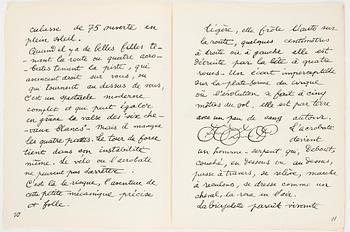 culasse de 75 ouverte en
plein soleil.
Quand il y a de belles filles te-
-nant la route ou quatre acro-
-bates tenant la piste, qui
avancent droit sur vous, ou
qui tournent au dessus de vous,
C'est un spectacle moderne
complet et qui peut égaler
en grâce la valse des "six che-
-vaux blancs" mais il manque
les quatre pattes. Le tour de force
tient dans son instabilité
même. Le vélo ou l'acrobate
ne peuvent pas s'arrêter.
C'est là le risque, l'aventure de
cette petite mécanique précise
et folle.
10
légère, elle frôle l'auto sur
la route, quelques centimètres
à droite ou à gauche elle est
détruite par la bête à quatre
roues. Un écart imperceptible
sur la plateforme du cirque
où d'évolution à huit à cinq
mètres du sol elle est par terre
avec un peu de sang autour.
L'acrobate
devient
un homme-serpent qui, debout,
couché, en dessous ou au dessus,
passe à travers, se relève, marche
à reculons, se dresse comme un
cheval, la roue en l'air.
La bicyclette paraît vivante
11